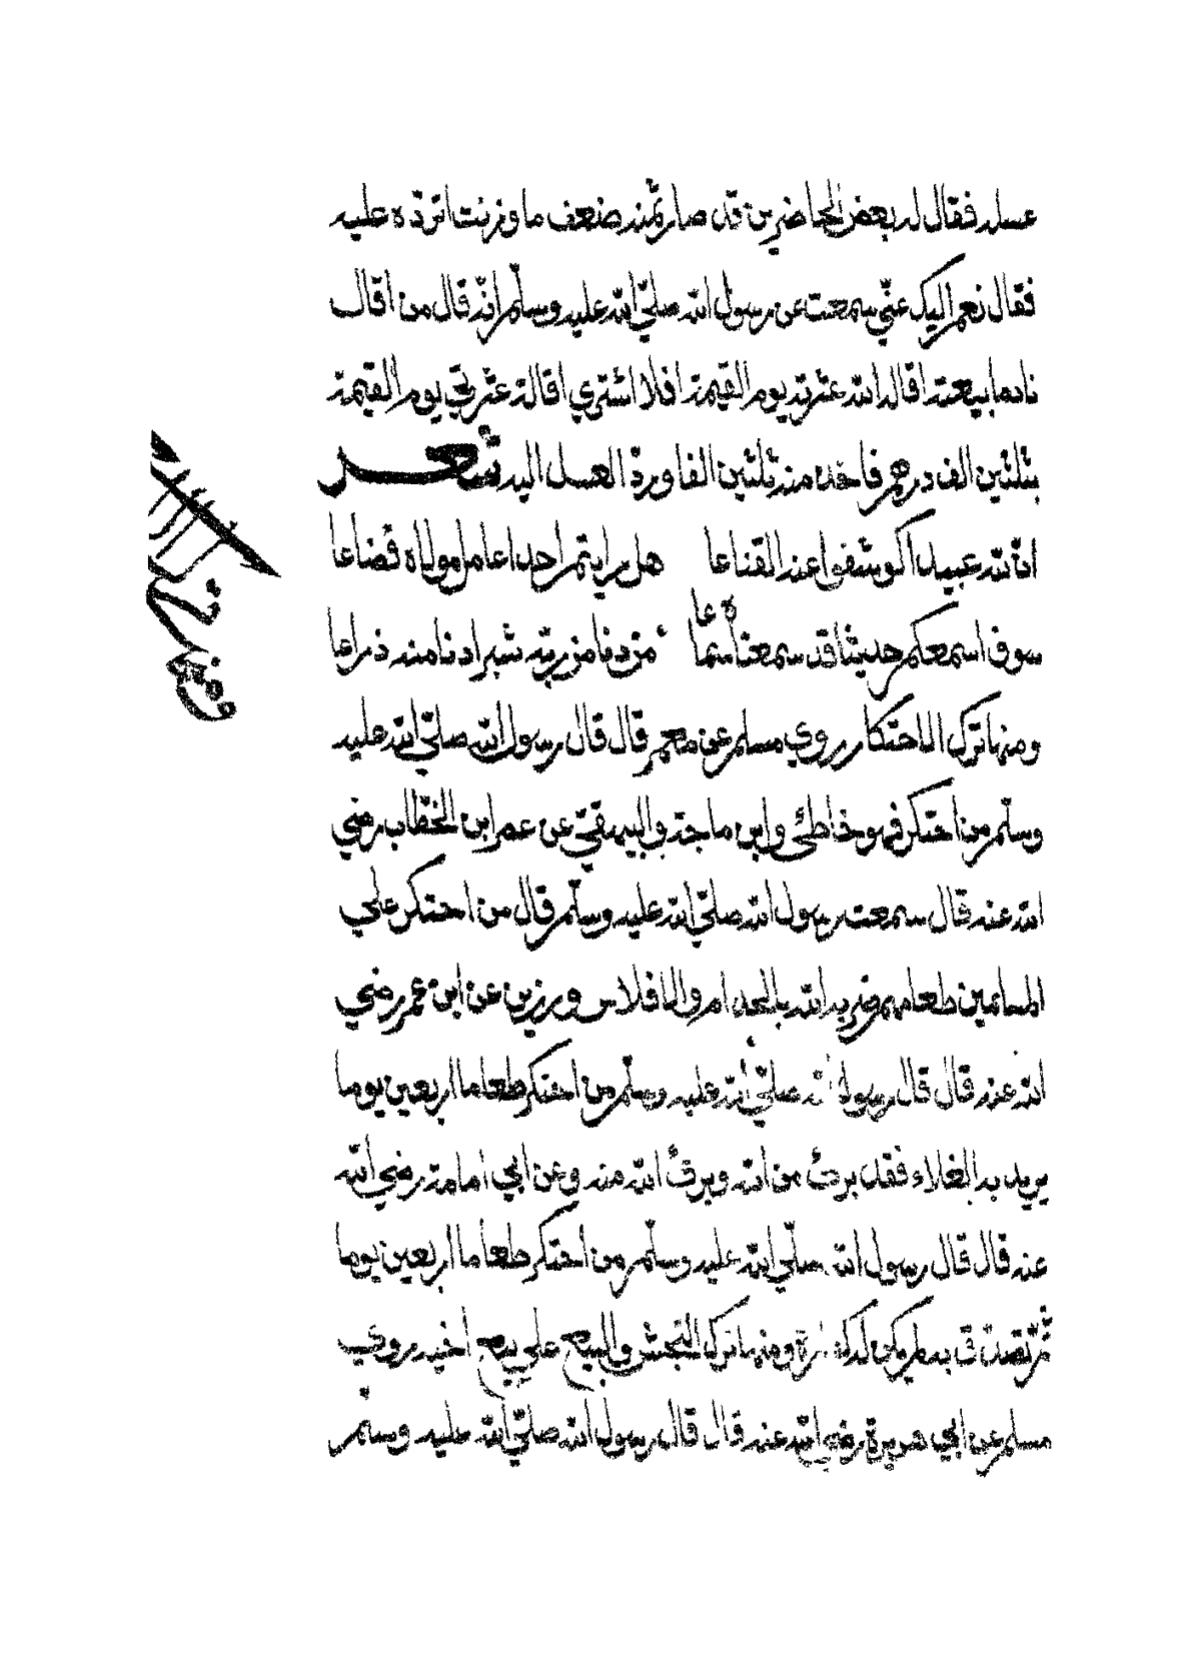 عسله فقال له بعض الحاضرين قد صار ثمنه ضعف ما وزنت اتردّه عليه
فقال نعم اليك عنّي سمعت عن رسول الله صلّي الله عليه وسلّم انّه قال من اقال
نادما بيعته اقاله الله عثرته يوم القيمة افلا اشتري اقالة عثرتي يوم القيمة
بثلثين الف درهم فاخذ منه ثلثين الفا وردّ العسل اليه شعر
انّ لله عبيدا كوشفوا عند القناعا هل رايتم احدا عامل مولاه فضاعا
سوف اسمعكم حديثا قد سمعناه سماعا من دنا من ربّه شبرا دنا منه ذراعا
ومنها ترك الاحتكار روي مسلم عن معمر قال قال رسول الله صلّي الله عليه
وسلّم من احتكر فهو خاطئ وابن ماجة والبيهقيّ عن عمر ابن الخطّاب رضي
الله عنه قال سمعت رسول الله صلّي الله عليه وسلّم قال من احتكر علي
المسلمين طعامهم ضربه الله بالجدام والافلاس ورزين عن ابن عمر رضي
الله عنه قال قال رسول الله صلّي الله عليه وسلّم من احتكر طعاما اربعين يوما
يريد به الغلاء فقد برئ من الله وبرئ الله منه وعن ابي امامة رضي الله
عنه قال قال رسول الله صلّي الله عليه وسلّم من احتكر طعاما اربعين يوما
ثمّ تصدّق به لم يكن له كفارة ومنها ترك النجش والبيع علي بيع اخيه روي
مسلم عن ابي هريرة رضي الله عنه قال قال رسول الله صلّي الله عليه وسلّم